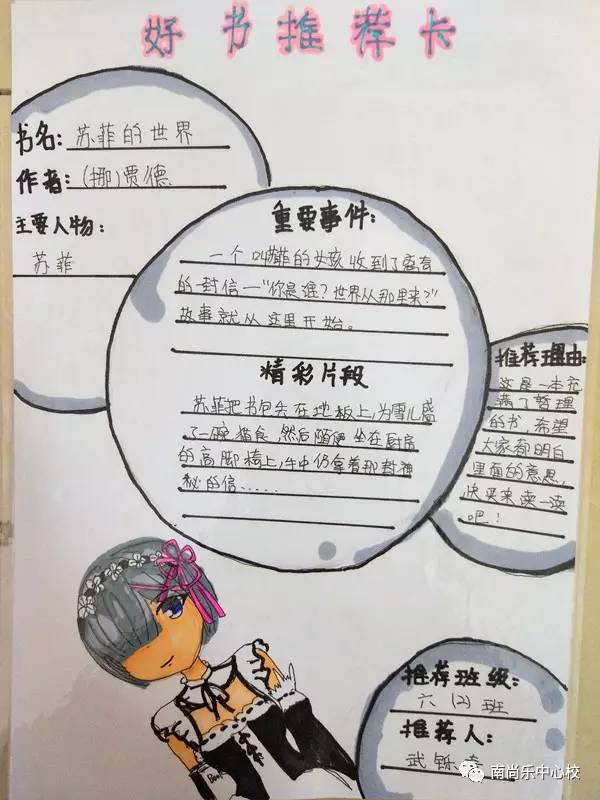 好书推荐卡
书名：苏菲的世界
作者：(挪)贾德
主要人物：
苏菲
重要事件：
一个叫苏菲的女孩收到了离奇
的一封信一"你是谁？世界从那里来？"
故事就从这里开始。
精彩片段
苏菲把书包丢在地板上，为雪儿盛
了一碗猫食，然后随便坐在厨房
的高脚椅上，手中仍拿着那封神
秘的信……
推荐理由：
这是一本充
满了哲理
的书，希望
大家都明白
里面的意思，
快买来读一读
吧！
推荐班级：
六(2)班
推荐人：
武铄
南尚乐中心校